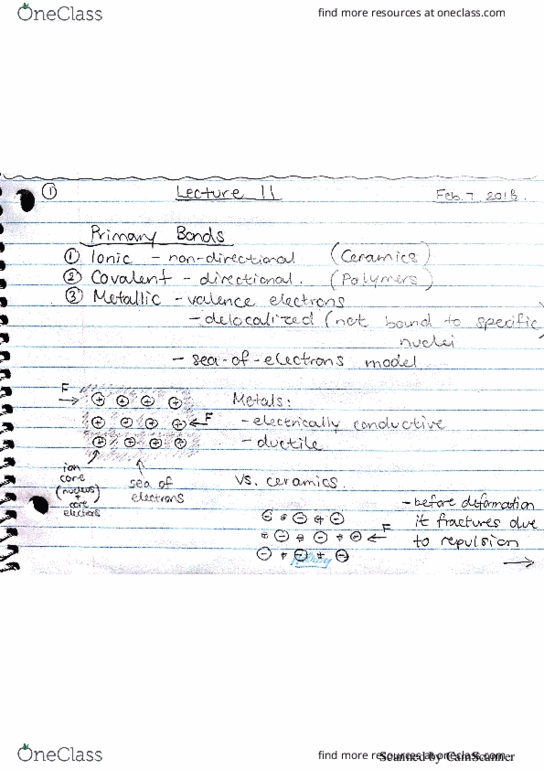 OneClass
find more resources at oneclass.com
①
Lecture 11
Feb. 7 2018.
Primary Bonds
① Ionic - non-directional (Ceramics)
② Covalent - directional. (Polymers)
③ Metallic - valence electrons
- delocalized (not bound to specific
nuclei
- sea-of-electrons model
F
Metals:
F
- electrically conductive
- ductile
ion
core
(nucleus)
+
core
electrons
sea of
electrons
Vs. ceramics.
- before deformation
it fractures due
to repulsion
F
OneClass
find more resources at oneclass.com
Scanned by CamScanner